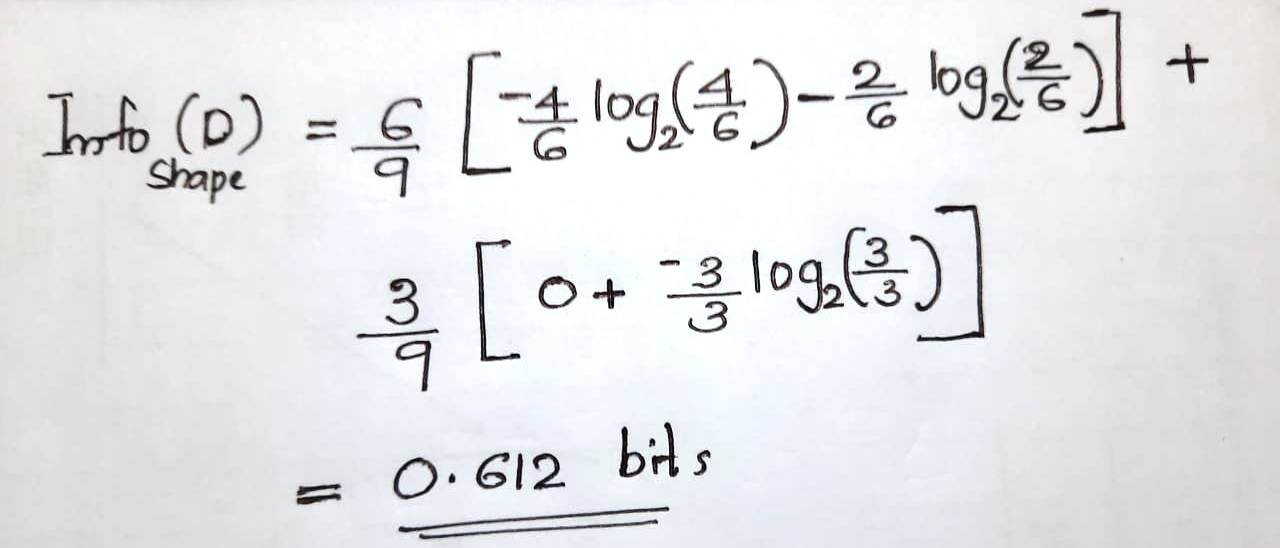 Info_Shape (D) = 6/9 [ -4/6 log₂(4/6) - 2/6 log₂(2/6) ] +
3/9 [ 0 + -3/3 log₂(3/3) ]
= 0.612 bits